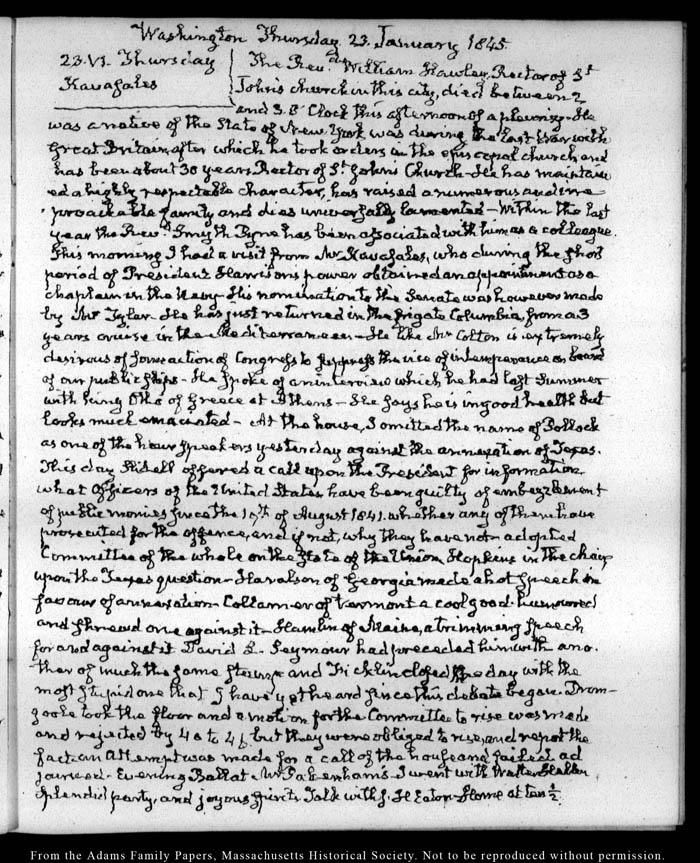 Washington Thursday 23. January 1845.
23. VI. Thursday
Kavasales
The Revd. William Hawley, Rector of St.
John's church in this city, died between 2
and 3. O'Clock this afternoon of a pleurisy. He
was a native of the State of New-York was during the last War with
Great Britain, after which he took orders in the episcopal church and
has been about 30 years Rector of St. John's Church. He has maintain
ed a highly respectable character, has raised a numerous and irre
proachable family and dies universally lamented - Within the last
year the Revd. Smyth Pyne has been associated with him as a colleague.
This morning I had a visit from Mr. Kavasales, who during the short
period of President Harrison's power obtained an appointment as a
chaplain in the Navy. His nomination to the Senate was however made
by Mr. Tyler. He has just returned in the frigate Columbia, from a 3
years cruise in the Mediterranean - He like Mr. Colton is extremely
desirous of some action of Congress to suppress the vice of intemperance on board
of our public ships - He spoke of an interview which he had last Summer
with king Otho of Greece at Athens - He says he is in good health but
looks much emaciated - At the house, I omitted the name of Pollock
as one of the hour speakers yesterday against the annexation of Texas.
This day Slidell offered a call upon the President for information
what Officers of the United States have been guilty of embezzlement
of public monies since the 17th. of August 1841. whether any of them have
prosecuted for the offence, and if not, why they have not - adopted
Committee of the whole on the State of the Union, Hopkins in the chair
upon the Texas question - Haralson of Georgia made a hot speech in
favour of annexation. Collamer of Vermont a cool good-humoured
and shrewd one against it - Hamlin of Maine, a trimming speech
for and against it David L. Seymour had preceded him with ano-
ther of much the same stamp and Ficklin closed the day with the
most stupid one that I have yet heard since this debate began. Drom-
goole took the floor and a motion for the Committee to rise was made
and rejected by 40 to 46. but they were obliged to rise, and report the
fact. an attempt was made for a call of the house and failed ad
journed. Evening Ball at Mr. Pakenham's I went with Walter Hellen
splendid party, and joyous spirits Talk with J. H. Eaton - Home at ten 1/2.
From the Adams Family Papers, Massachusetts Historical Society. Not to be reproduced without permission.